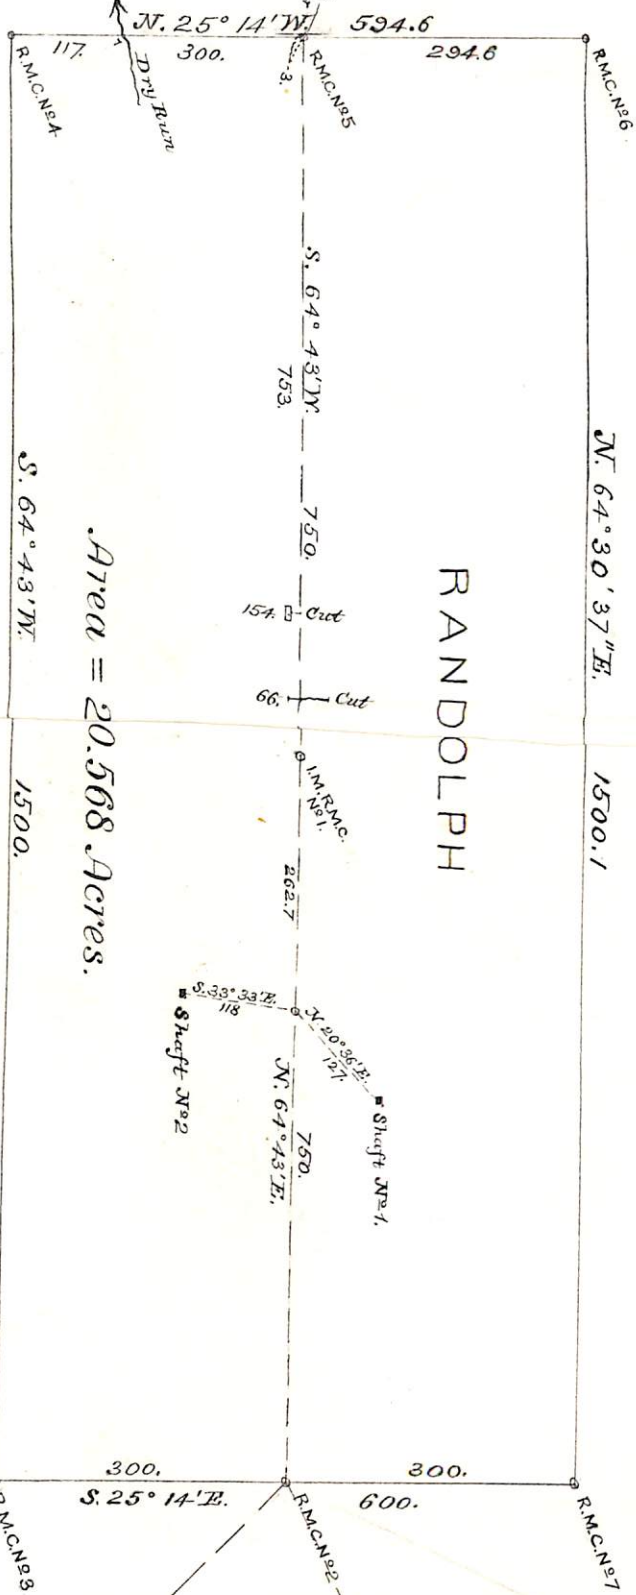 N. 25° 14' W. 594.6
117. 300. 294.6
3.
R.M.C. No 4
Dry Run
R.M.C. No 5
R.M.C. No 6
S. 64° 43' W.
753.
750.
N. 64° 30' 37" E.
1500.1
S. 64° 43' W.
1500.
RANDOLPH
Area = 20.568 Acres.
154. Cut
66. Cut
I.M.R.M.C.
No 1.
262.7
S. 33° 33' E.
118
Shaft No 2
N. 20° 36' E.
127.
Shaft No 1.
750.
N. 64° 43' E.
300. 300.
S. 25° 14' E. 600.
R.M.C. No 3
R.M.C. No 2
R.M.C. No 7